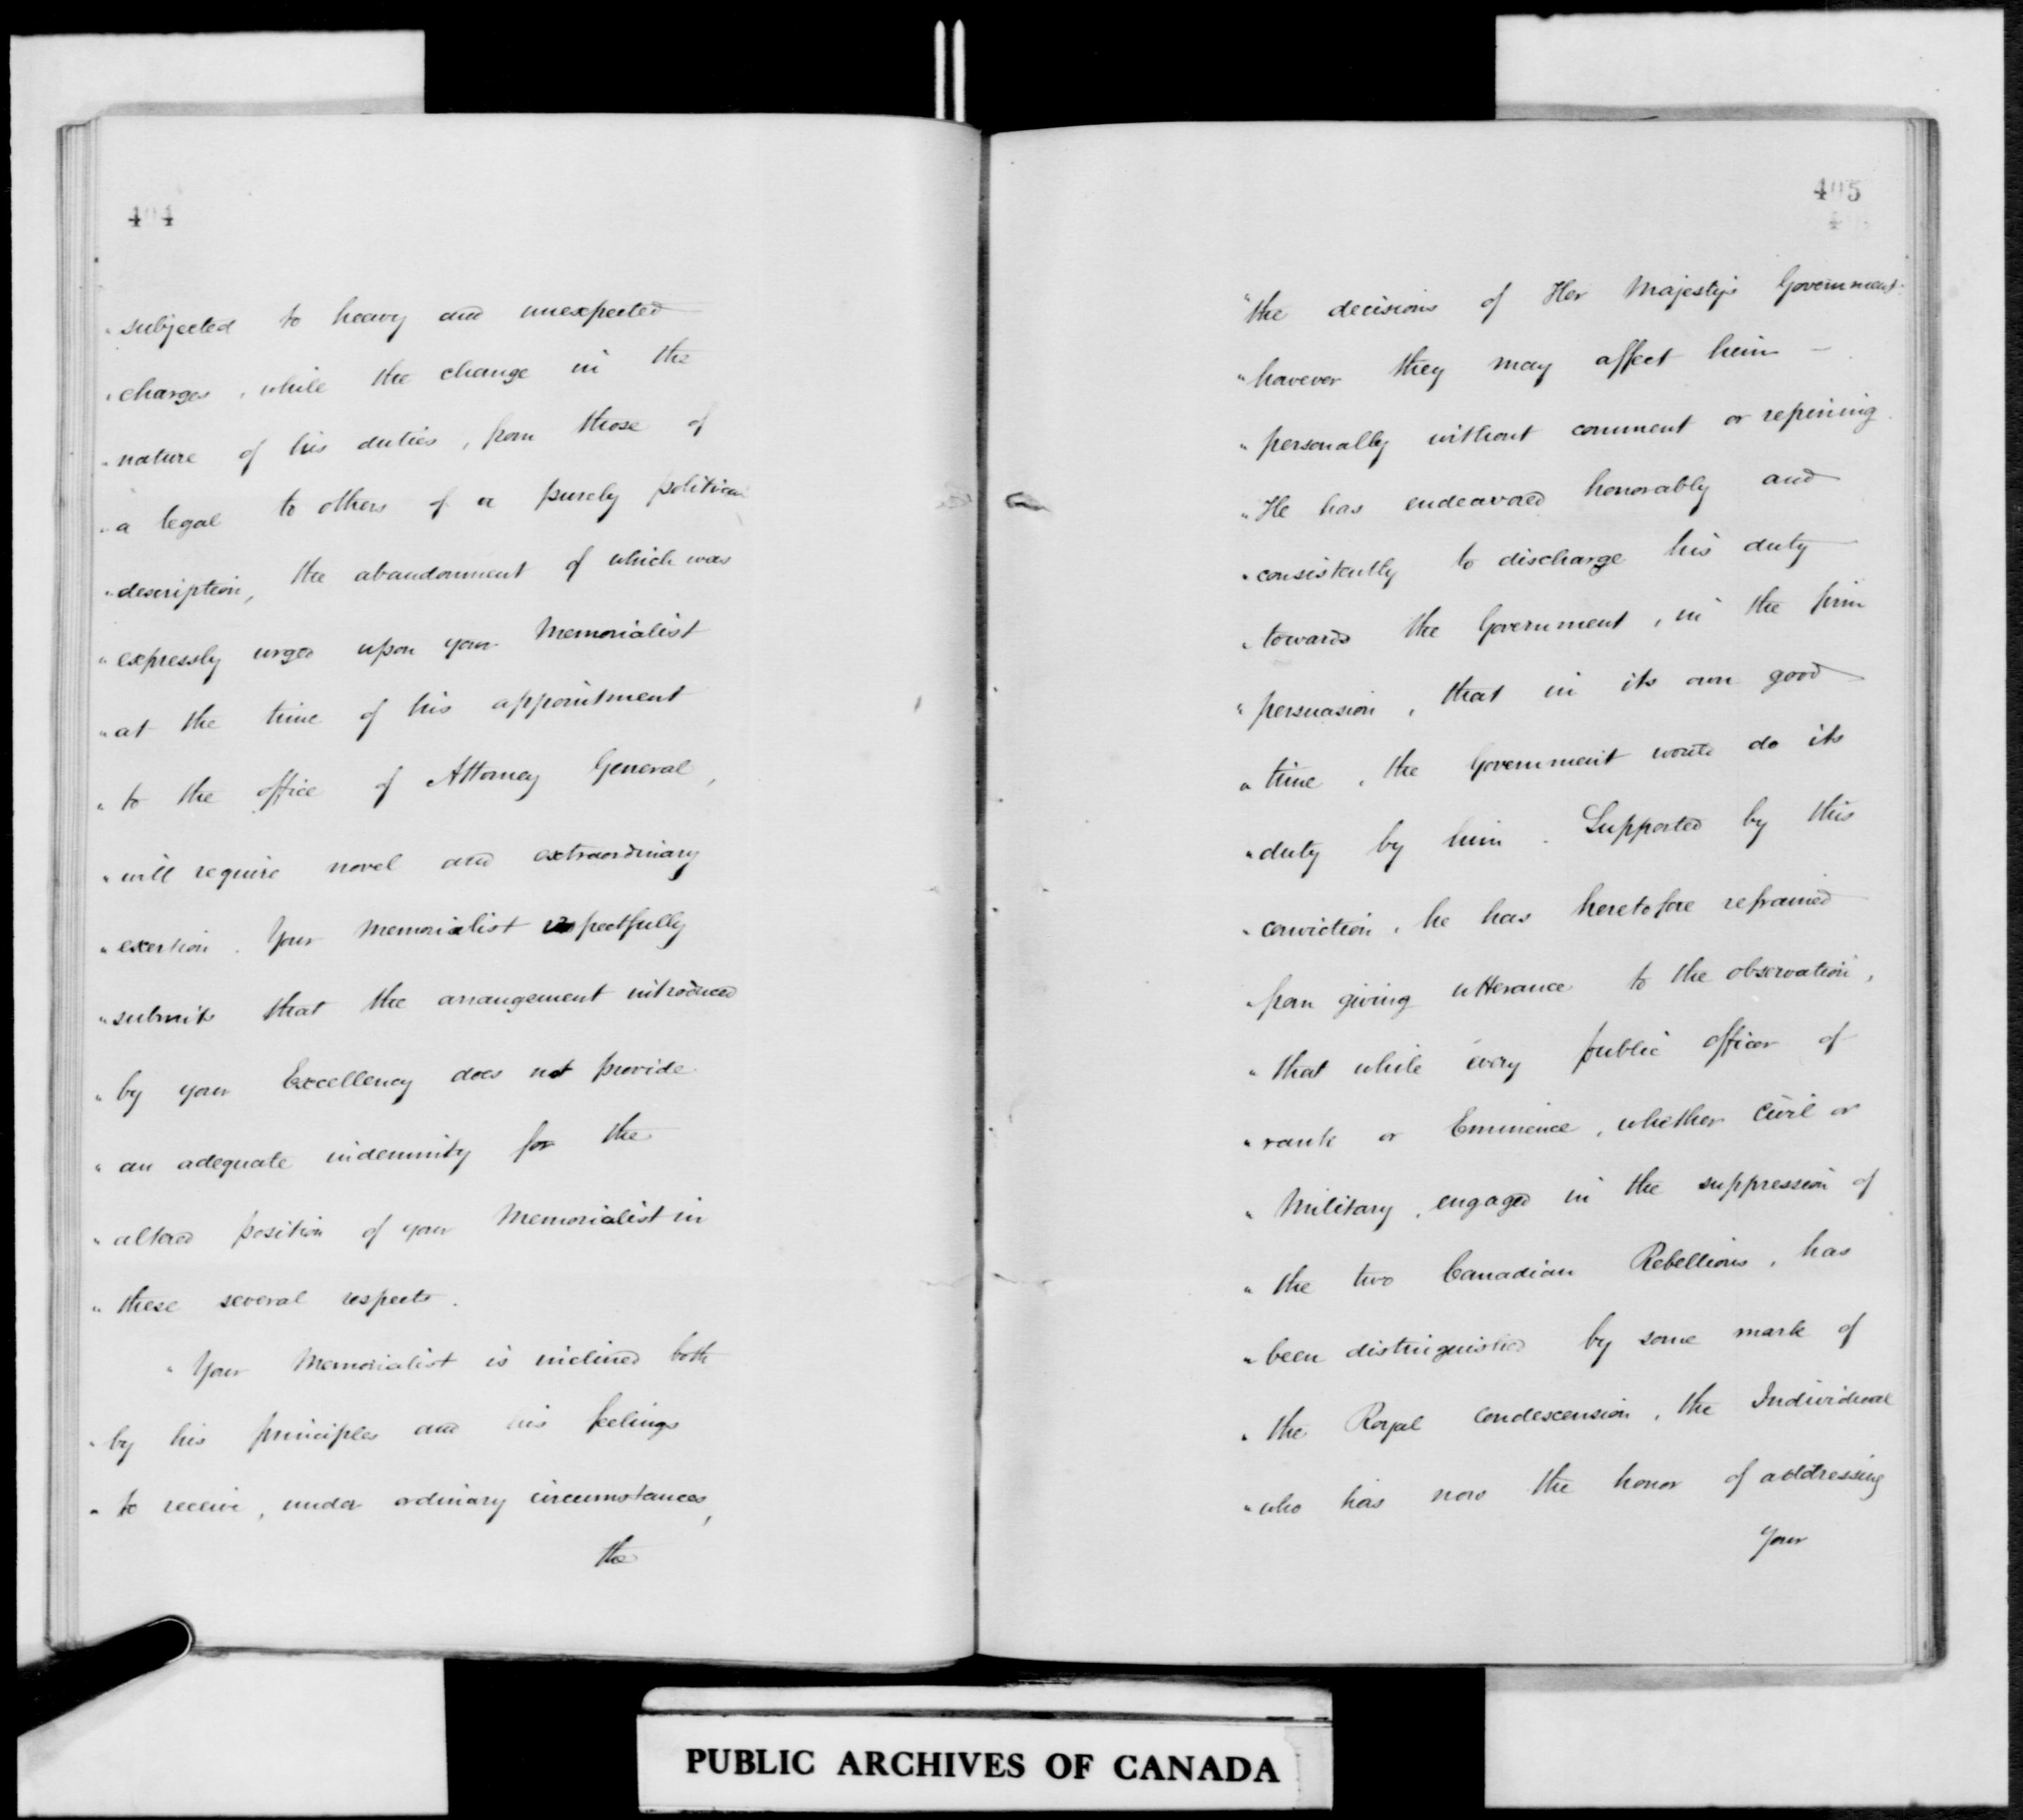 404
"subjected to heavy and unexpected
"charges, while the change in the
"nature of his duties, from those of
"a legal to others of a purely political
"description, the abandonment of which was
"expressly urged upon your Memorialist
"at the time of his appointment
"to the office of Attorney General,
"will require novel and extraordinary
"exertion. Your Memorialist respectfully
"submits that the arrangement introduced
"by your Excellency does not provide
"an adequate indemnity for the
"altered position of your Memorialist in
"these several respects.
"Your Memorialist is inclined both
"by his principles and his feelings
"to receive, under ordinary circumstances,
the
405
"the decisions of Her Majesty's Government
"however they may affect him –
"personally without comment or repining.
"He has endeavored honorably and
"consistently to discharge his duty
"towards the Government, in the firm
"persuasion, that in its own good
"time, the Government would do its
"duty by him. Supported by this
"conviction, he has heretofore refrained
"from giving utterance to the observation,
"that while every public officer of
"rank or Eminence, whether Civil or
"Military, engaged in the suppression of
"the two Canadian Rebellions, has
"been distinguished by some mark of
"the Royal condescension, the Individual
"who has now the honor of addressing
Your
PUBLIC ARCHIVES OF CANADA